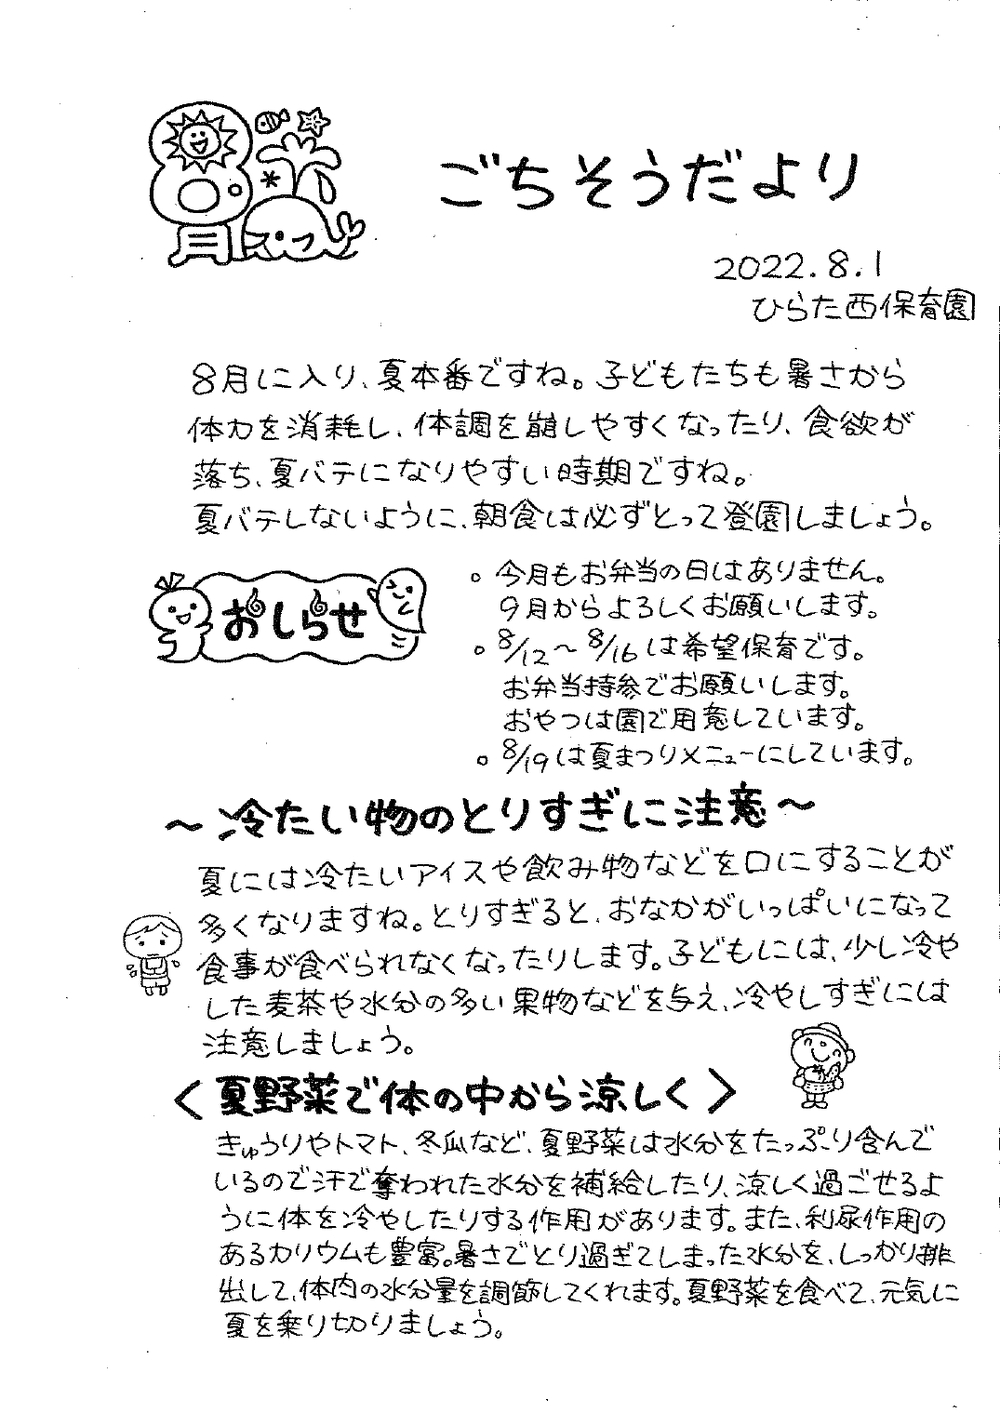 8月
ごちそうだより
2022.8.1
ひらた西保育園
8月に入り、夏本番ですね。子どもたちも暑さから
体力を消耗し、体調を崩しやすくなったり、食欲が
落ち、夏バテになりやすい時期ですね。
夏バテしないように、朝食は必ずとって登園しましょう。
おしらせ
○ 今月もお弁当の日はありません。
9月からよろしくお願いします。
○ 8/12～8/16は希望保育です。
お弁当持参でお願いします。
おやつは園で用意しています。
○ 8/19は夏まつりメニューにしています。
～冷たい物のとりすぎに注意～
夏には冷たいアイスや飲み物などを口にすることが
多くなりますね。とりすぎると、おなかがいっぱいになって
食事が食べられなくなったりします。子どもには、少し冷や
した麦茶や水分の多い果物などを与え、冷やしすぎには
注意しましょう。
〈夏野菜で体の中から涼しく〉
きゅうりやトマト、冬瓜など、夏野菜は水分をたっぷり含んで
いるので汗で奪われた水分を補給したり、涼しく過ごせるよ
うに体を冷やしたりする作用があります。また、利尿作用の
あるカリウムも豊富。暑さでとり過ぎてしまった水分を、しっかり排
出して、体内の水分量を調節してくれます。夏野菜を食べて、元気に
夏を乗り切りましょう。